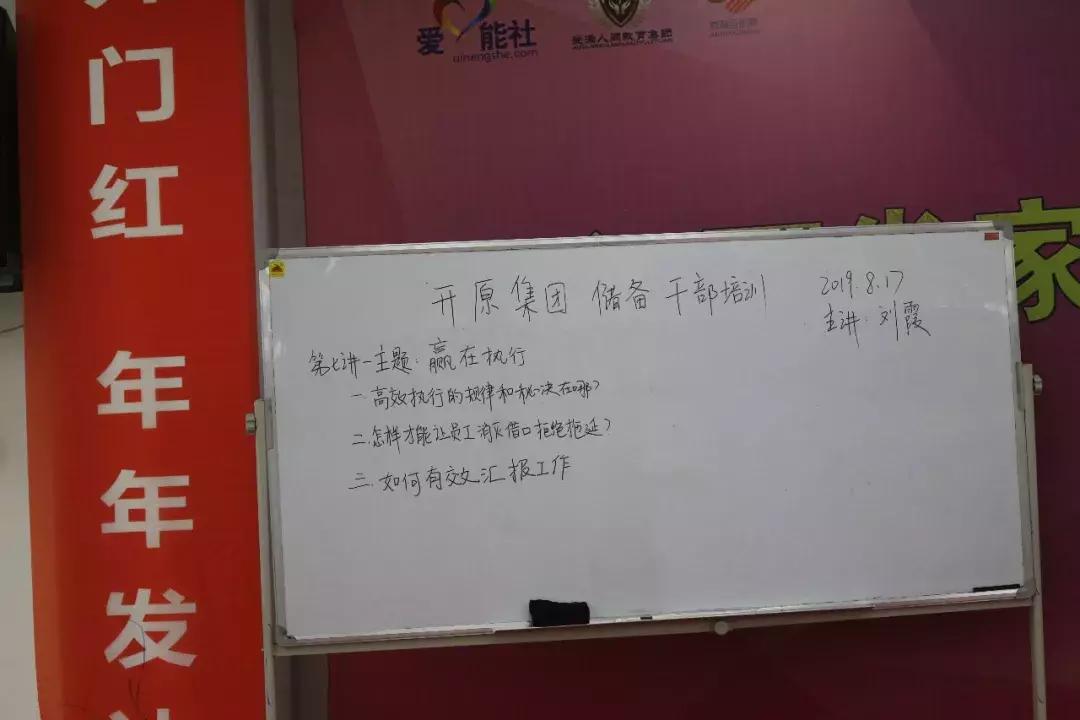 门红 年年发
爱能社
ainengshe.com
家
开原集团 储备干部培训
2019.8.17
主讲:刘霞
第七讲-主题:赢在执行
一.高效执行的规律和秘决在哪?
二.怎样才能让员工消灭借口拒绝拖延?
三.如何有效汇报工作